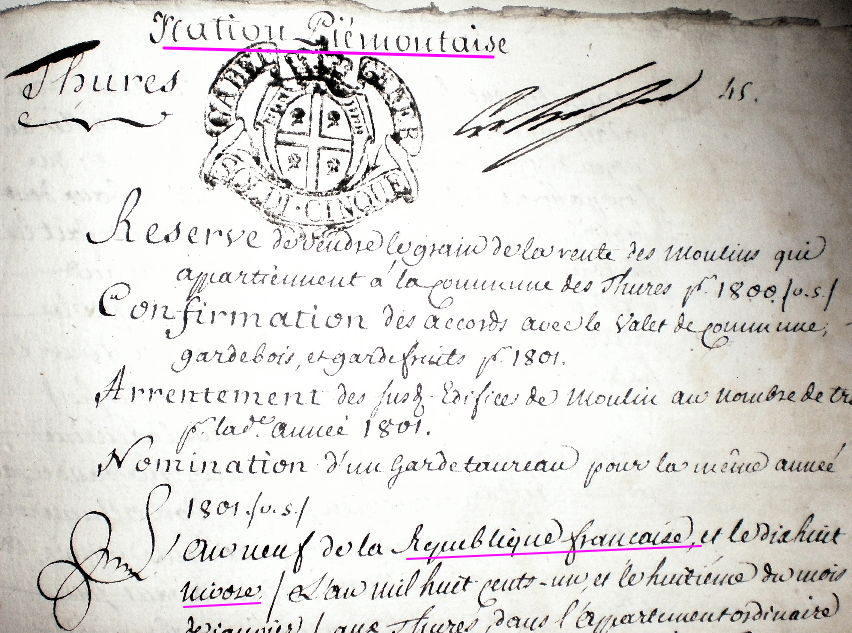 Nation Piémontaise
Thures
45.
GABEL GENER
DI CINQUE
Reserve de vendre le grain de la vente des Moulins qui
appartiennent á la commune des Thures p.r 1800 /v.s/
Confirmation des accords avec le Valet de commune,
gardebois, et gardefruits p.r 1801.
Arrentement des susd. Edifices de Moulin au nombre de tr
p.r lad.e année 1801.
Nomination d'un Gardetaureau pour la même année
1801. /v.s/
L'an neuf de la Republique francaise, et le dixhuit
nivose / L'an mil huit cents-un, et le huitiême du mois
de janvier / aux Thures, dans l'appartement ordinaire